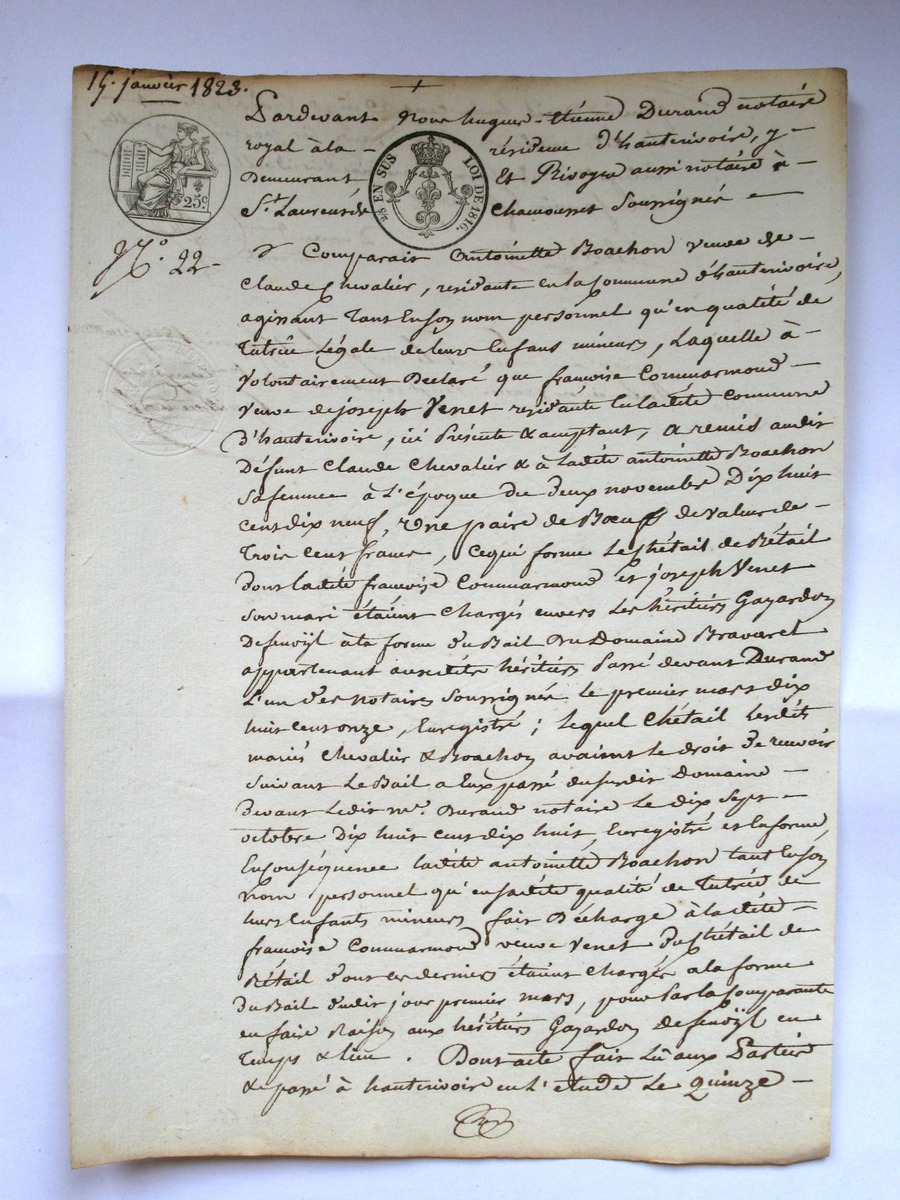 15. janvier 1823.
Pardevant Nous hugues-étienne Durand notaire
royal à la - résidence d'hauterivoire, y -
Demeurant Et Rivoyre aussi notaire à -
St. Laurent de Chamousset Soussignés -
25 c.
25 EN SUS LOI DE 1816.
N.° 22 -
Comparait Antoinette Boachon veuve de -
Claude Chevalier, residante en la Commune d'hauterivoire,
agissant tant en son nom personnel qu'en qualité de
tutrice Légale de leurs Enfans mineurs, Laquelle à -
volontairement Declaré que françoise Commarmond -
veuve de joseph Venet residante en ladite commune
d'hauterivoire, ici Présente & acceptant, a remis audit
Défunt Claude Chevalier & à Ladite antoinette Boachon
sa femme à L'époque du deux novembre Dix huit
cent dix neuf, une paire de Bœufs de valeur de -
trois cent francs, ce qui forme Le chétail de Bétail
dont ladite françoise Commarmond et joseph Venet
son mari étaient chargés envers Les héritiers Gayardon
De fenoÿl à la forme du Bail du Domaine Braveret
appartenant auxdits héritiers Passé devant Durand
L'un des notaires Soussignés le premier mars dix
huit cent onze, Enregistré; lequel Chétail Lesdits
mariés Chevalier & Boachon avaient le droit de recevoir
suivant Le Bail a Eux passé du susdit Domaine -
devant Ledit me. Durand notaire Le dix Sept -
octobre Dix huit cent dix huit, Enregistré et En forme
En Conséquence ladite antoinette Boachon tant En son
nom personnel qu'en sadite qualité de tutrice de
leurs Enfants mineurs, fait Décharge à ladite -
françoise Commarmond veuve Venet du Chétail de
Bétail dont ces derniers étaient chargés a la forme
du Bail dudit jour premier mars, pour Par la Comparante
en faire Raison aux héritiers Gayardon de fenoÿl en
temps & lieu. Dont acte fait Lu aux Parties
& passé à hauterivoire en L'étude Le quinze -